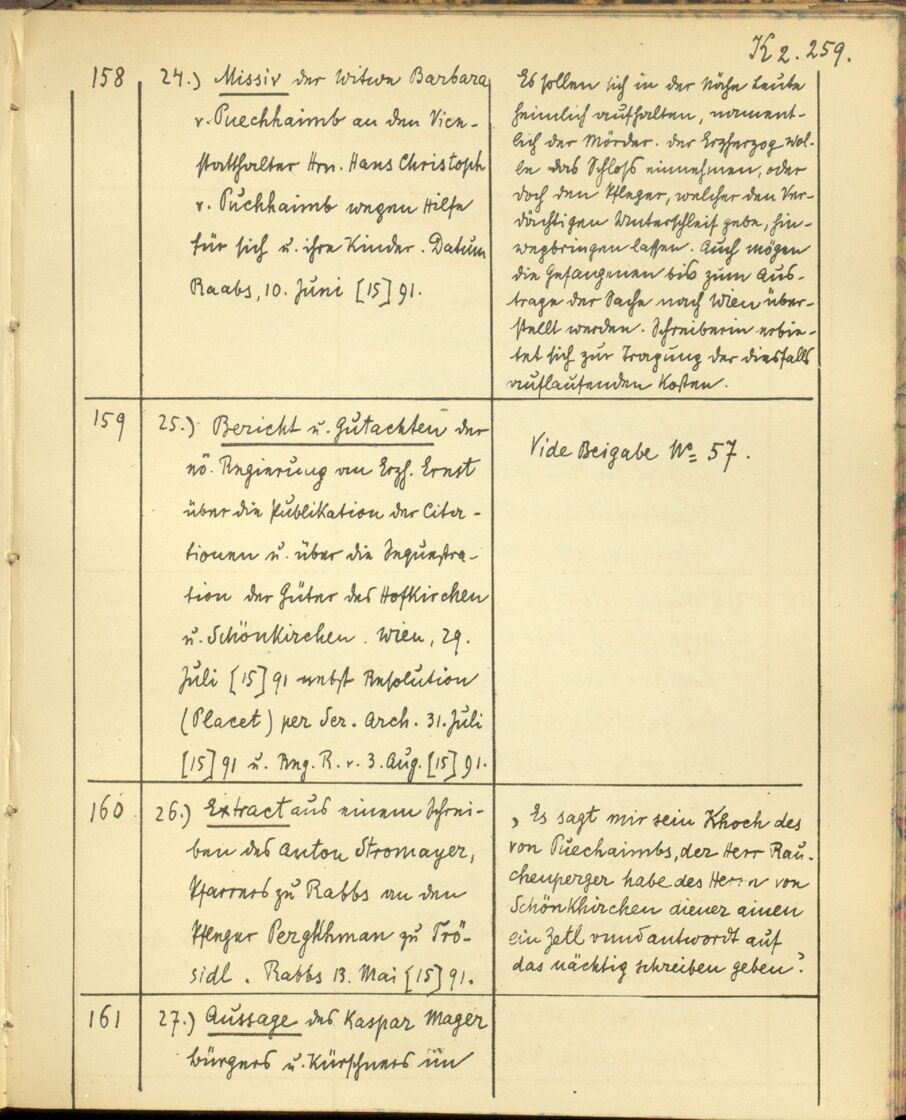 K 2. 259.
158
24.) Missiv der Witwe Barbara
v. Puechhaimb an den Vice-
statthalter Hrn. Hans Christoph
v. Puchhaimb wegen Hilfe
für sich u. ihre Kinder. Datum
Raabs, 10. Juni [15]91.
Es sollen sich in der Nähe Leute
heimlich aufhalten, nament-
lich der Mörder. der Erzherzog wol-
le das Schloss einnehmen, oder
doch den Pfleger, welcher den Ver-
dächtigen Unterschleif gebe, hin-
wegbringen lassen. Auch mögen
die Gefangenen bis zum Aus-
trage der Sache nach Wien über-
stellt werden. Schreiberin erbie-
tet sich zur Tragung der diesfalls
auflaufenden Kosten.
159
25.) Bericht u. Gutachten der
nö. Regierung an Erzh. Ernst
über die Publikation der Cita-
tionen u. über die Sequestra-
tion der Güter des Hofkirchen
u. Schönkirchen. Wien, 29.
Juli [15]91 nebst Resolution
(Placet) per Ser. Arch. 31. Juli
[15]91 u. Rng. R. v. 3. Aug. [15]91.
Vide Beigabe No 57.
160
26.) Extract aus einem Schrei-
ben des Anton Stromayer,
Pfarrers zu Rabbs an den
Pfleger Pergkhman zu Trö-
sidl. Rabbs 13. Mai [15]91.
„Es sagt mir sein Khoch des
von Puechaimbs, der Herr Rau-
chenperger habe des Herrn von
Schönkhirchen diener ainen
ein Zetl vnnd antwordt auf
das nächtig schreiben geben."
161
27.) Aussage des Kaspar Mager
bürgers u. Kürschners im